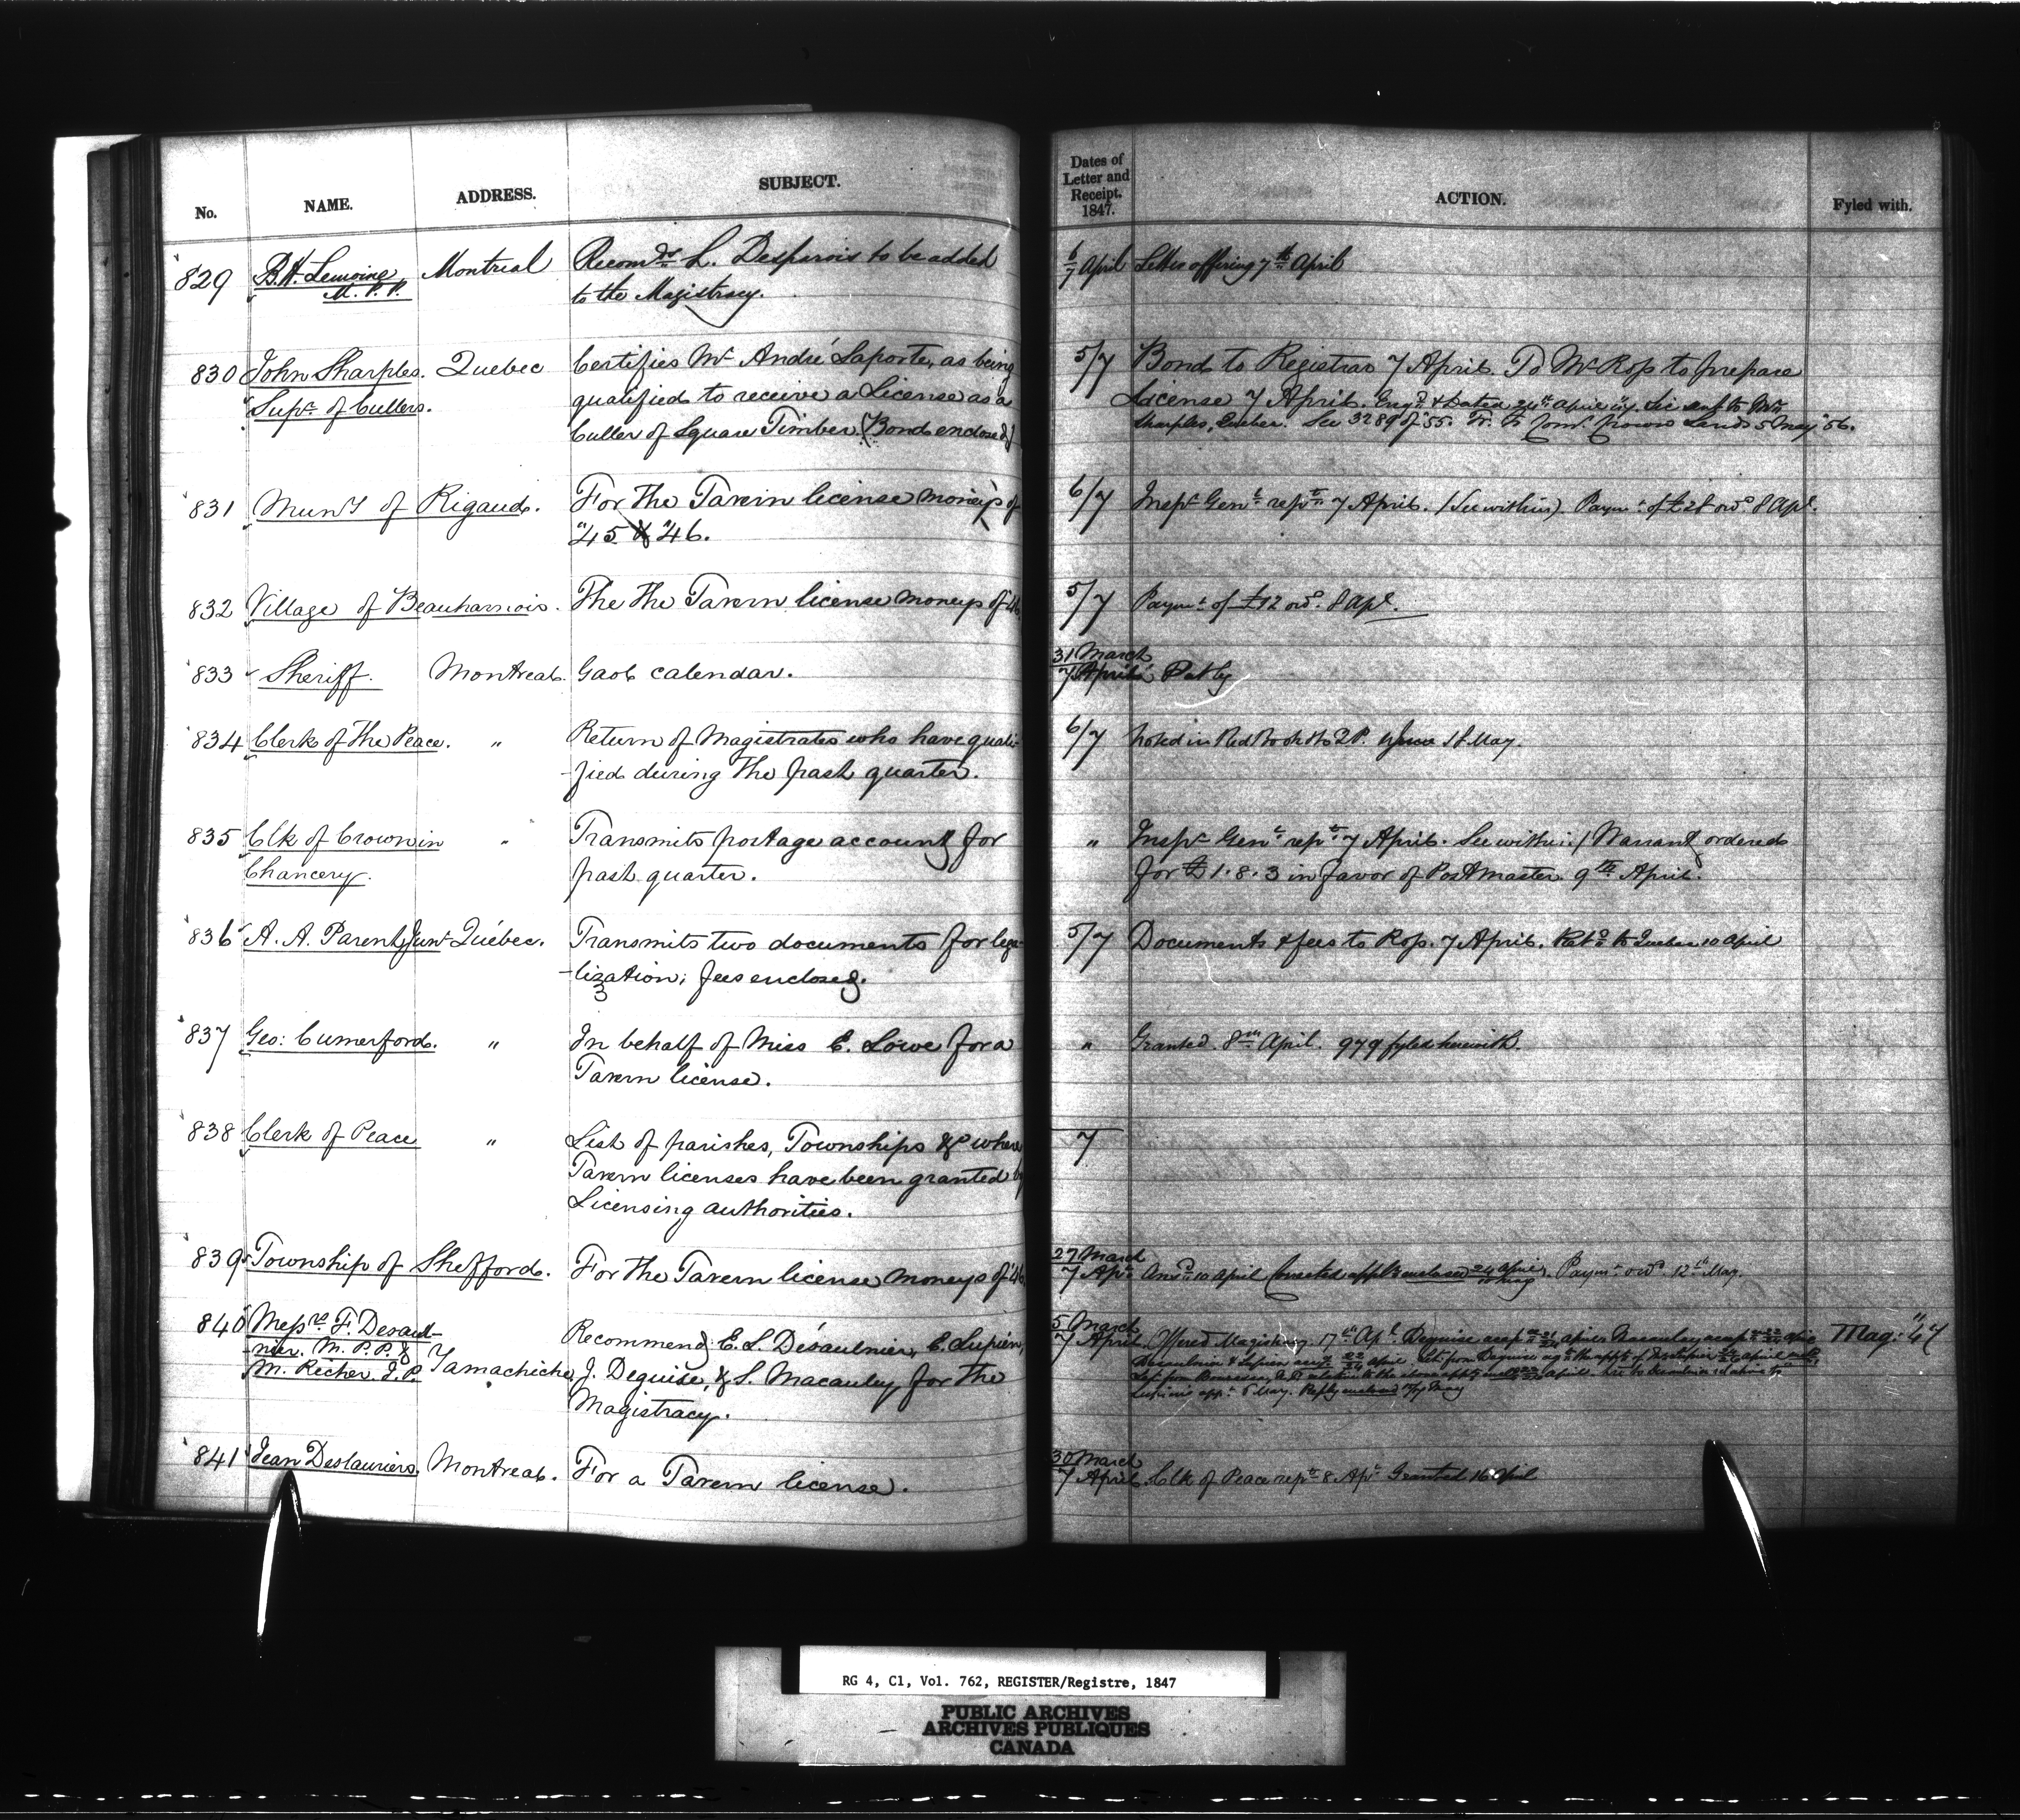 No. NAME. ADDRESS. SUBJECT. Dates of Letter and Receipt. 1847. ACTION. Fyled with.
829 B.H. Lemoine, Montreal Recomds L. Desparois to be added 6/7 April Letter offering 7th April
M.P.P. to the Magistracy.
830 John Sharples. Quebec Certifies Mr André Laporte, as being 5/7 Bond to Registrar 7 April. To Mr Ross to prepare
Supr of Cullers. qualified to receive a License as a License 7 April. Engd & Dated 24th April
Culler of Square Timber. (Bond enclosed) Sharples, Quebec. See 3289 of '55. Crown Lands 5 May '56.
831 Munty of Rigaud. For the Tavern license moneys of 6/7 Inspr Genl rept 7 April. (See within) Paymt of £28 ord 8 Apl.
"45 & "46.
832 Village of Beauharnois. The The Tavern license moneys of "46 5/7 Paymt of £12 ord. 8 Apl.
833 Sheriff. Montreal. Gaol calendar. 31 March
7 April Put by
834 Clerk of the Peace. " Return of Magistrates who have quali- 6/7 Noted in Red Book 18 May.
-fied during the past quarter.
835 Clk of Crown in " Transmits postage account for " Inspr Genl rept 7 April. See within / Warrant ordered
Chancery. past quarter. for £1.8.3 in favor of Postmaster 9th April.
836 A. A. Parent, Junr Québec. Transmits two documents for lega- 5/7 Documents & fees to Ross. 7 April. Retd to Quebec 10 April
-lization; fees enclosed.
837 Geo: Cumerford. " In behalf of Miss E. Lowe for a " Granted. 8th April. 979 fyled herewith.
Tavern license.
838 Clerk of Peace " List of parishes, Townships &c where 7
Tavern licenses have been granted by
Licensing authorities.
839 Township of Shefford. For the Tavern license moneys of "46 27 March
7 Apl. Ansd 10 April Corrected applt enclosed 24 April / 10 May. Paymt ord 12th May.
840 Messrs F. Desaul- 5 March
-nier. M.P.P. & Yamachiche Recommend: E. L. Désaulnier, E. Lupien, 7 April. Offered Magistracy 17th Apl. Mag: "47
M. Richer J.P. J. Deguise, & S. Macauley for the
Magistracy. Lupien's appt 5 May.
841 Jean Deslauriers. Montreal. For a Tavern license. 30 March
7 April. Clk of Peace rept 8 Apl Granted 16 April
RG 4, C1, Vol. 762, REGISTER/Registre, 1847
PUBLIC ARCHIVES
ARCHIVES PUBLIQUES
CANADA